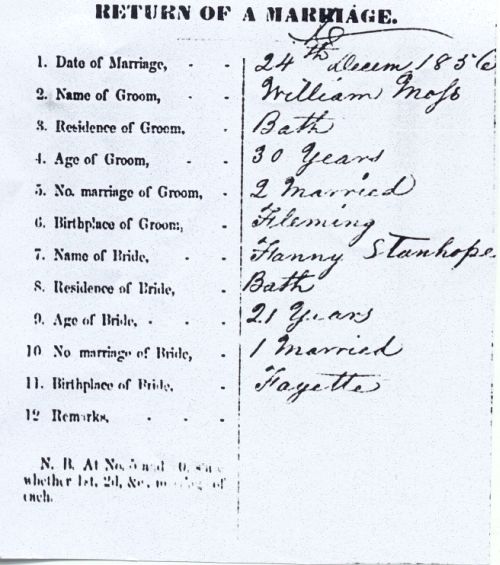 RETURN OF A MARRIAGE.
18
1. Date of Marriage, - - 24th Decem 1856
2. Name of Groom, - William Moss
3. Residence of Groom, - Bath
4. Age of Groom, - - 30 Years
5. No. marriage of Groom, - 2 Married
6. Birthplace of Groom, - Fleming
7. Name of Bride, - - Fanny Stanhope
8. Residence of Bride, - Bath
9. Age of Bride, - - - 21 Years
10 No marriage of Bride, - 1 Married
11. Birthplace of Bride, - Fayette
12 Remarks, - - -
N. B. At No. 5 and 10, state
whether 1st, 2d, &c., of
each.